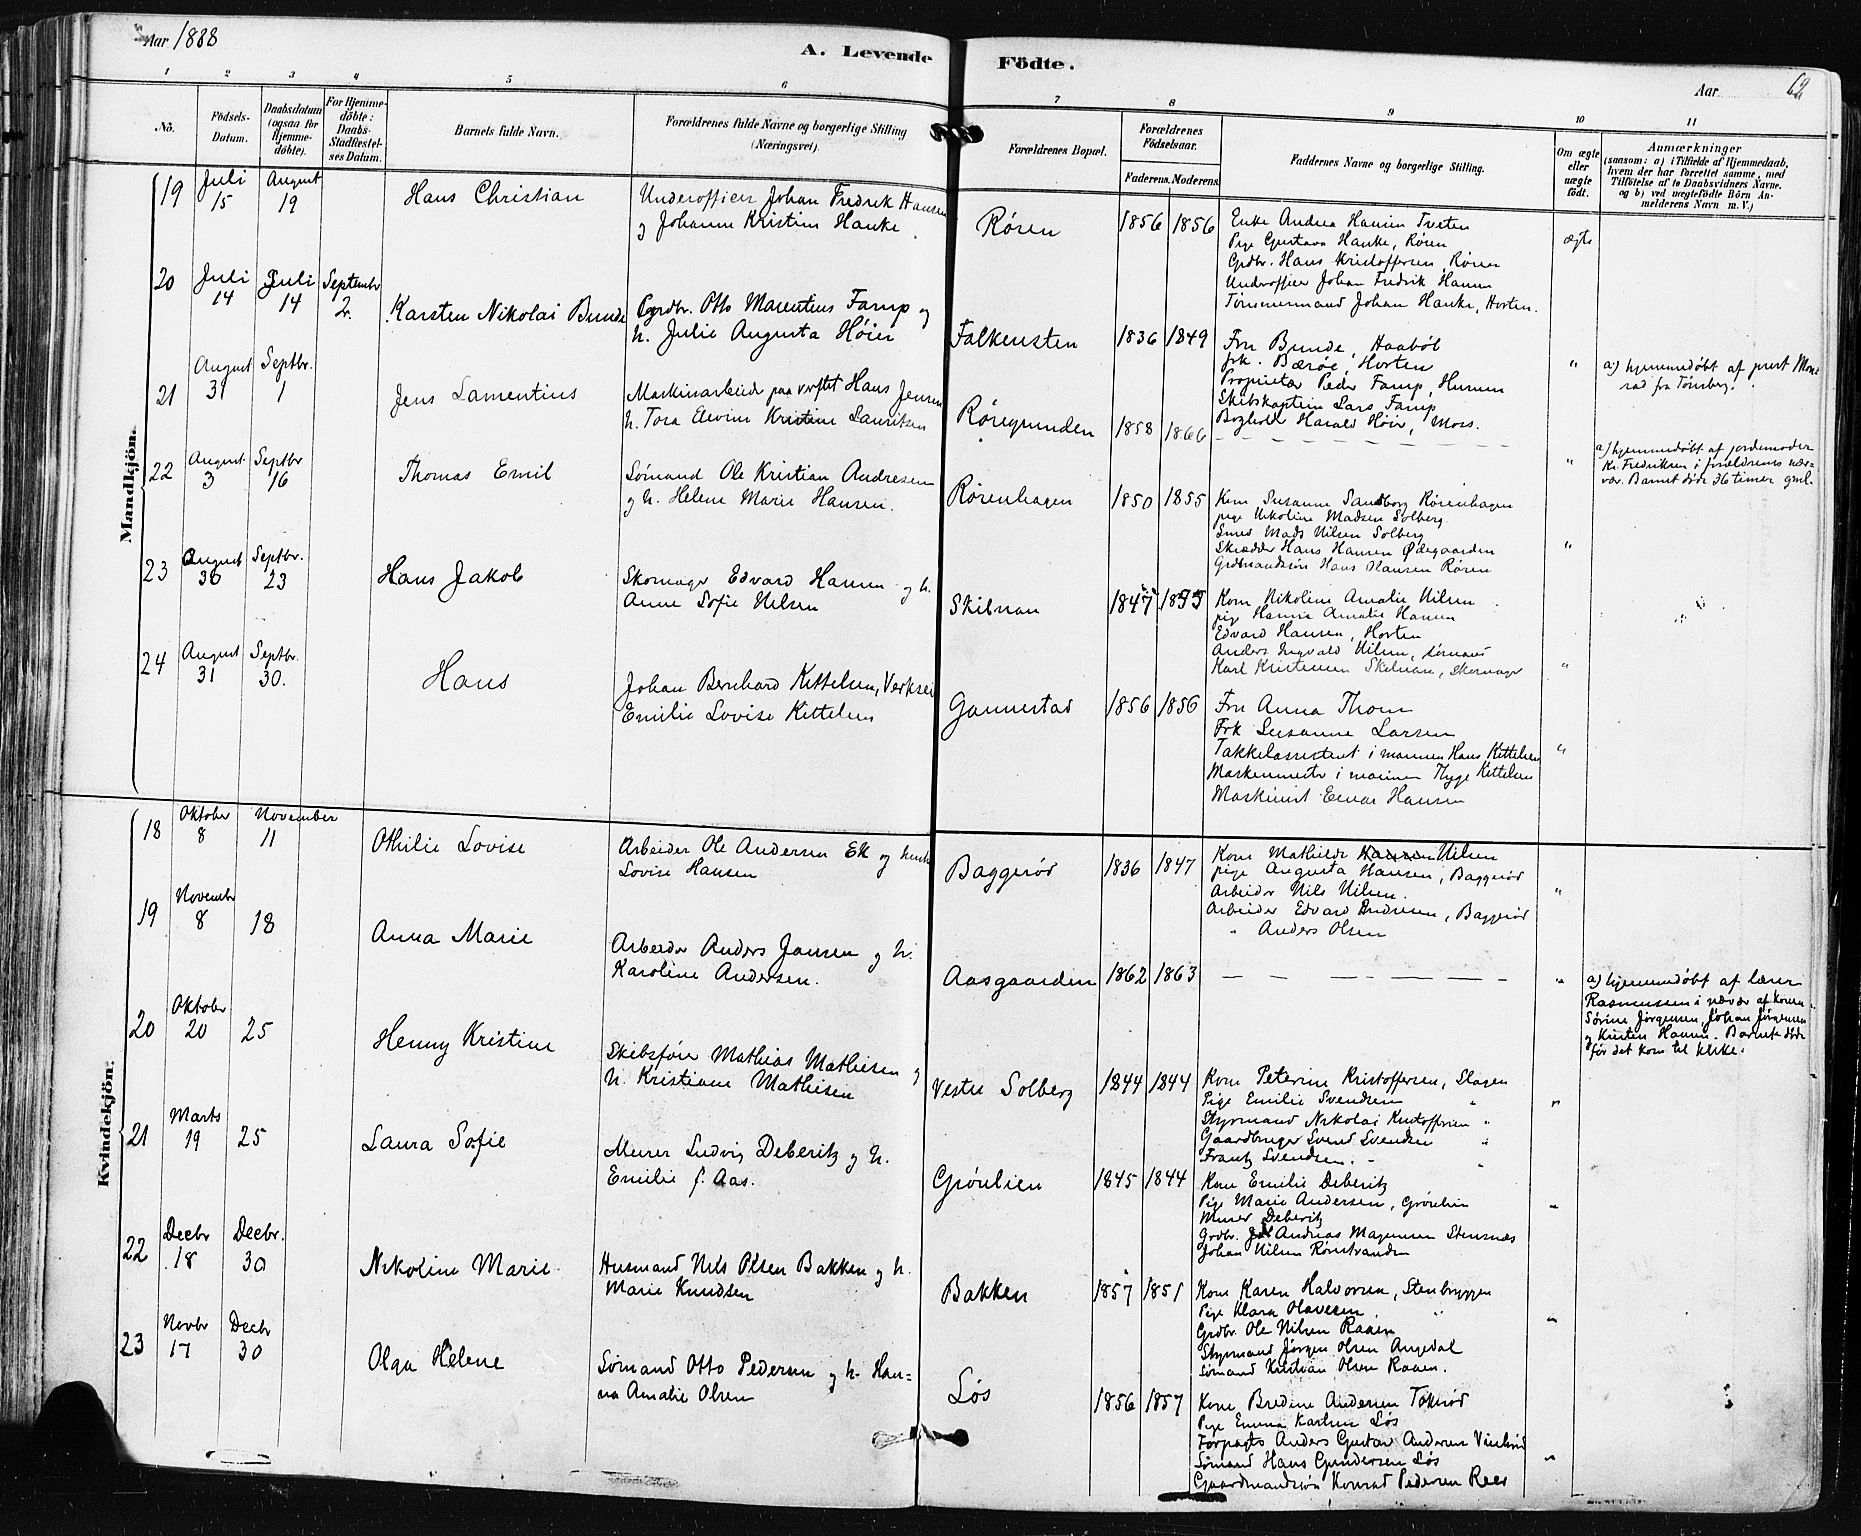 Aar 1888
A. Levende Födte.
Aar 62
1 2 3 4 5 6 7 8 9 10 11
No.
Födsels-Datum.
Daabsdatum (ogsaa for Hjemme-döbte).
For Hjemme-döbte: Daabs-Stadfæstel-ses Datum.
Barnets fulde Navn.
Forældrenes fulde Navne og borgerlige Stilling (Næringsvei).
Forældrenes Bopæl.
Forældrenes Födselsaar.
Faderens. Moderens.
Faddernes Navne og borgerlige Stilling.
Om ægte eller uægte födt.
Anmærkninger
(saasom: a) i Tilfælde af Hjemmedaab,
hvem der har forrettet samme, med
Tilföielse af to Daabsvidners Navne.
og b) ved uegtefödte Börn An-
melderens Navn m. V.)
Mandkjön.
19 Juli 15 August 19
Hans Christian
Underofficer Johan Fredrik Hansen
og Johanne Kristine Hanke
Røren 1856 1856
Enke Andrea Hansen Tveten
Pige Gustava Hanke, Røren
Grdbr. Hans Kristoffersen Røren
Underofficer Johan Fredrik Hansen
Tømmermand Johan Hanke, Horten.
ægte
20 Juli 14 Juli 14 September 2.
Karsten Nikolai Bunde
Grdbr. Otto Marentius Famp og
h. Julie Augusta Høier
Falkensten 1836 1849
Fru Bunde, Haabøl
frk. Bærøe, Horten
Proprietær Peder Famp, Hunum
Skibskaptein Lars Famp
Bogholder Harald Høier, Moss.
"
a) hjemmedøbt af prest Mon-
rad fra Tønsberg.
21 August 31 Septbr. 1
Jens Lamentius
Maskinarbeider paa verftet Hans Jensen
h. Tora Elvine Kristine Lauritsen
Røregrunden 1858 1866
"
a) hjemmedøbt af jordemoder
Kr. Fredriksen i forældrenes nær-
vær. Barnet døde 36 timer gml.
22 August 3 Septbr 16
Thomas Emil
Sømand Ole Kristian Andresen
og h. Helene Marie Hansen.
Rørenhagen 1850 1855
Kone Susanne Sandborg Rørenhagen
pige Nikoline Madsen Solberg
Smed Mads Nilsen Solberg
Skrædder Hans Hansen Ødegaarden
Grdmandssøn Hans Hansen Røren
"
23 August 30 Septbr. 23
Hans Jakob
Skomager Edvard Hansen og h.
Anne Sofie Nilsen
Skibnan 1847 1855
Kone Nikoline Amalie Nilsen
pige Hanna Amalie Hansen
Edvard Hansen, Horten
Anders Ingvald Nilsen, sømand
Karl Kristensen Skibnan, Skomager
"
24 August 31 Septbr. 30.
Hans
Johan Bernhard Kittelsen, Verksei
Emilie Lovise Kittelsen
Gannestad 1856 1856
Fru Anna Thom
Frk Susanne Larsen
Takkelassistent i marinen Hans Kittelsen
Maskinmester i marinen Thyge Kittelsen
Maskinist Einar Hansen
"
Kvindekjön.
18 Oktober 8 November 11
Othilie Lovise
Arbeider Ole Andersen Ek og hustr
Lovise Hansen
Baggerød 1836 1847
Kone Mathilde Hansen Nilsen
pige Augusta Hansen, Baggerød
Arbeider Nils Nilsen.
Arbeider Edvard Andresen, Baggerød
" Anders Olsen
"
19 November 8 18
Anna Marie
Arbeider Anders Jansen og h.
Karoline Andersen.
Aasgaarden 1862 1863
"
a) hjemmedøbt af lærer
Rasmussen i nærvær af konen
Sørine Jørgensen, Johan Jørgensen
og Kristen Hansen. Barnet døde
før det kom til kirke.
20 Oktober 20 25
Henny Kristine
Skibsfører Mathias Mathiesen og
h. Kristiane Mathisen
Vestre Solberg 1844 1844
Kone Peterine Kristoffersen, Slagen
Pige Emilie Svendsen "
Styrmand Nikolai Kristoffersen "
Gaardbruger Svend Svendsen "
Frantz Svendsen. "
"
21 Marts 19 25
Laura Sofie
Murer Ludvig Deberitz og h.
Emilie f. Aas.
Grønlien 1845 1844
Kone Emilie Deberitz
Pige Marie Andersen, Grønlien
Murer Deberitz
Grdbr. Andreas Magnussen Stensnæs
Johan Nilsen Rørestranden
"
22 Decbr 18 Decbr. 30
Nikoline Marie
Husmand Nils Olsen Bakken og h.
Marie Knudsen
Bakken 1857 1851
Kone Karen Halvorsen, Stenbryggen
Pige Klara Olavesen "
Grdbr. Ole Nilsen Raaen
Styrmand Jørgen Olsen Angedal
Sømand Kristian Olsen Raaen.
"
23 Novbr 17 Decbr 30
Olga Helene
Sømand Otto Pedersen og h. Han-
na Amalie Olsen
Løs 1856 1857
Kone Bredine Andersen Tokerød
Pige Emma Karlsen Løs
Forpagter Anders Gustav Andersen
Sømand Hans Gundersen Løs
Gaardmandssøn Konrad Pedersen Reer
"